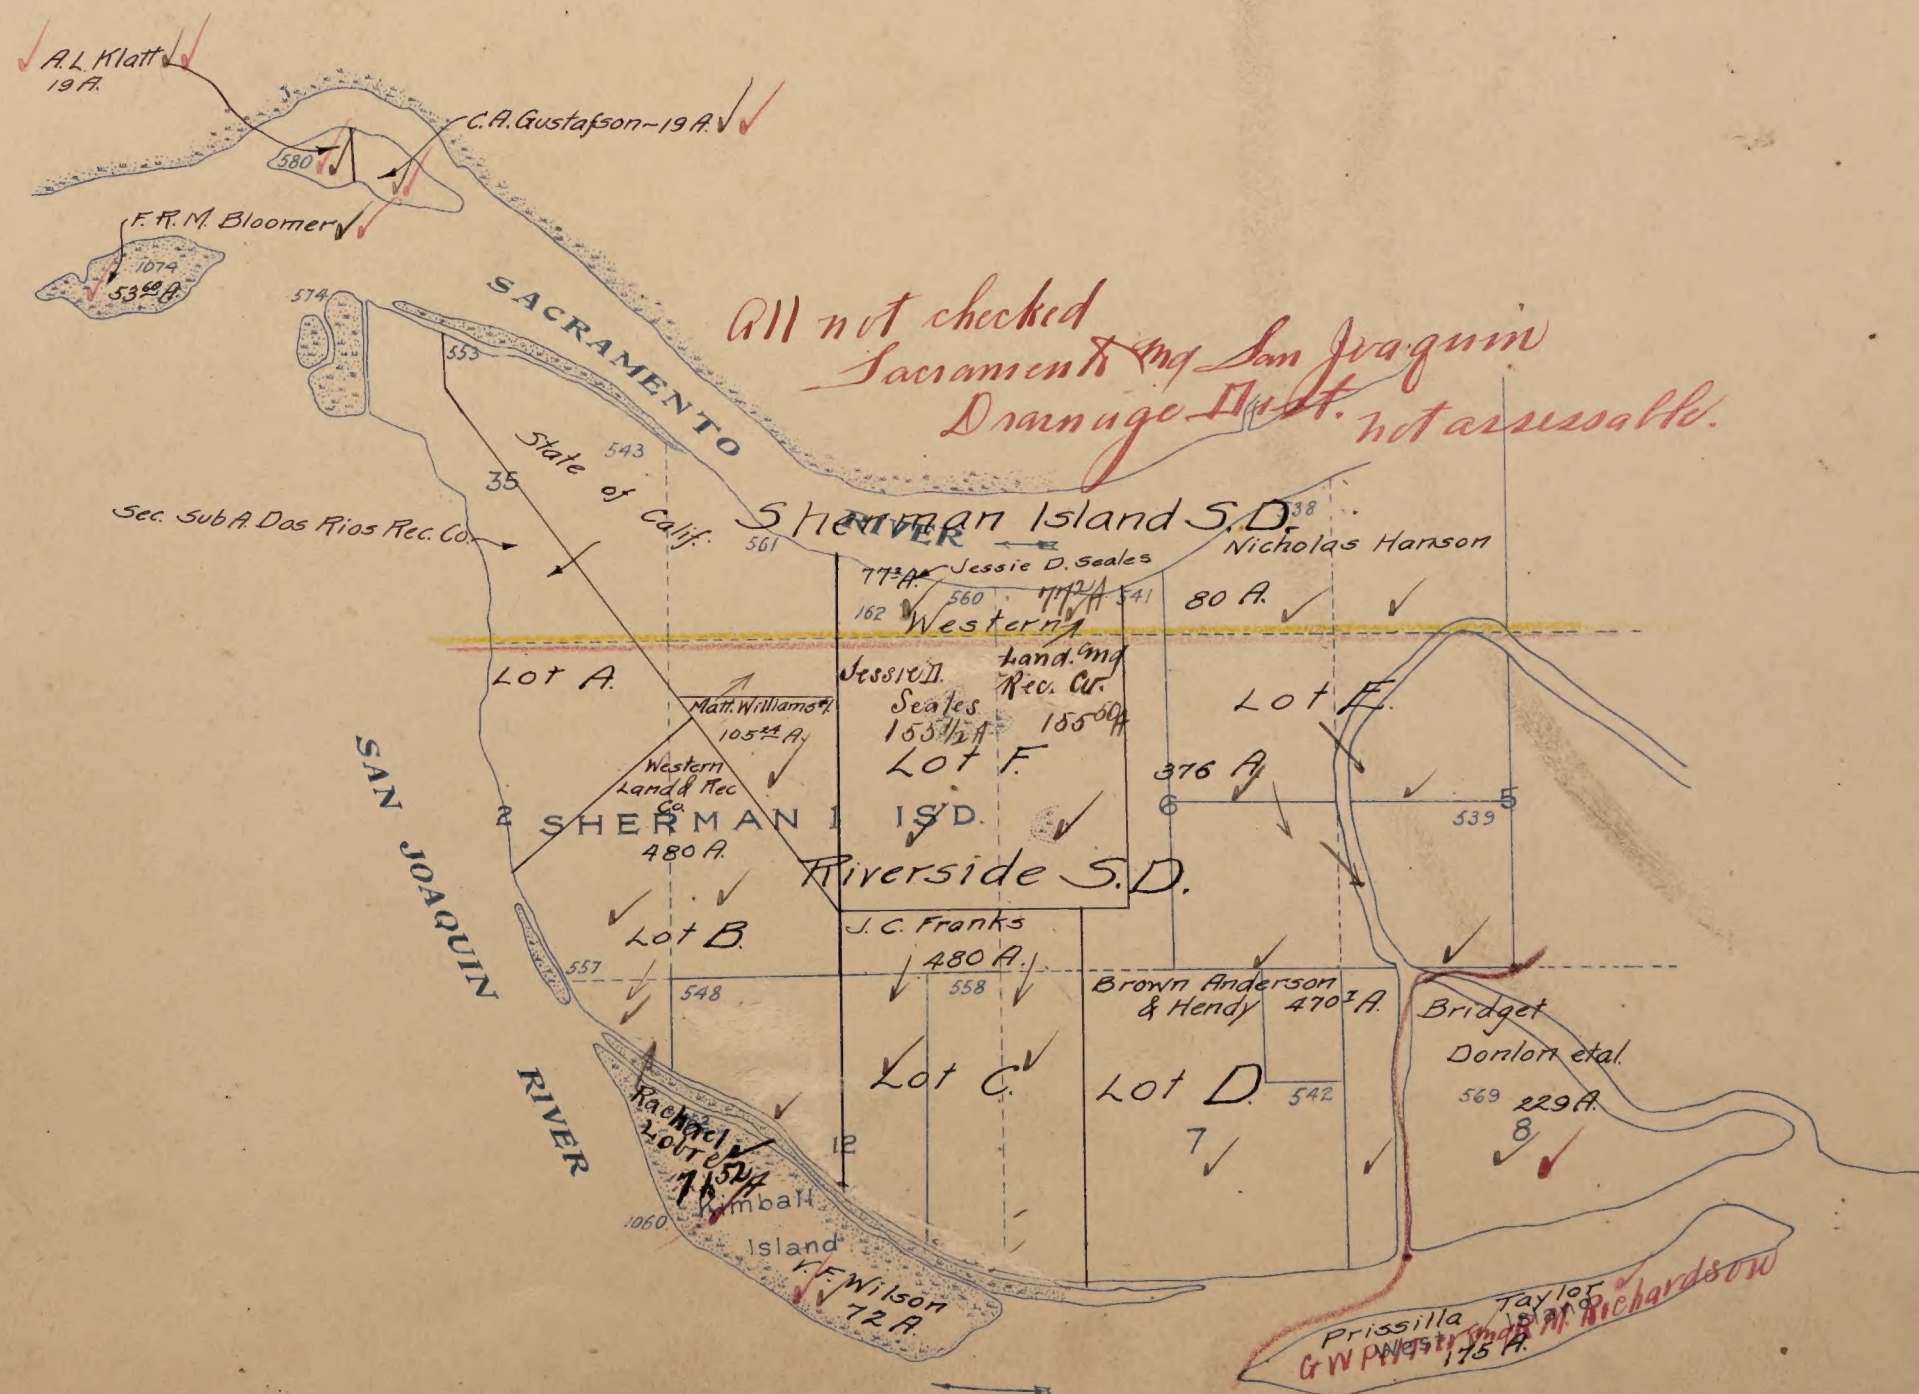 A.L. Klatt
19 A.
C.A. Gustafson-19 A.
580
F.R.M. Bloomer
1074
53 60 A.
574
SACRAMENTO
RIVER
All not checked
Sacramento and San Joaquin
Drainage Dist. not assessable.
553
543
35
State
of
Calif.
Sec. Sub A. Dos Rios Rec. Co.
561
Sherman Island S.D.
538
Nicholas Hanson
80 A.
Jessie D. Seales
77 3 A.
162
560
77 2 A
541
Western
Land. and
Rec. Co.
155 50 A
Jessie D.
Seales
155 1/2 A
Lot F.
Lot A.
Matt. Williams
105 24 A.
Lot E.
376 A
Western
Land & Rec
Co.
2
SHERMAN 1 ISD.
480 A.
6
5
539
Riverside S.D.
SAN JOAQUIN
RIVER
Lot B.
J.C. Franks
480 A.
557
548
558
Brown Anderson
& Hendy 470 A.
Bridget
Donlon et al.
569
229 A.
8
Lot C.
Lot D.
542
7
12
Rachael
71 52 A
Kimball
Island
1060
V.F. Wilson
72 A.
Prissilla Taylor
West Island
175 A.
G W
R.M. Richardson